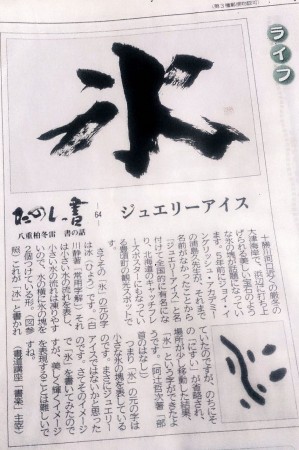 (第3種郵便物認可)
ライフ
氷
たのし書
—64—
八重柏冬雷 書の話
ジュエリーアイス
十勝川河口近くの厳冬の
大津海岸で、浜辺に打ち上
げられる美しい宝石のよう
な氷の塊が話題になってい
ます。5年前にジョイイ
ングリッシュ・アカデミー
の浦島久先生が、それまで
名前がなかったことから
「ジュエリーアイス」と名
付けて全国的に有名にな
り、北海道のキャッチフレ
ーズポスターにもなってい
る豊頃町の観光スポットで
す。
さてその「氷」の元の字
は冰(ひょう)です。(白
川静著「常用字解」それ
は小さい水の流れを表し、
小さい水の流れは凍りやす
いので、水の横に氷の塊を
2個つけている形。(図参
照)これが「冰」と書かれ
ていたのですが、のちにそ
の「冫にすい」が省略され、
場所が少し移動した結果、
「氷」という字ができたよ
うです。(阿辻哲次著「部
首のはなし」)
つまり「氷」の元の字は
小さな氷の塊を表している
のです。まさにジュエリー
アイスではないかと思った
のです。さてそのイメージ
で「氷」を書いてみたので
すが、美しく輝くイメージ
を表現することは難しいで
すね。
(書道講座「書楽」主宰)